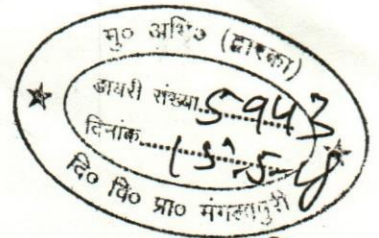 मु० अभि० (द्वारका)
डायरी संख्या.....5943
दिनांक.....15-5-18
दि० वि० प्रा० मंगलापुरी